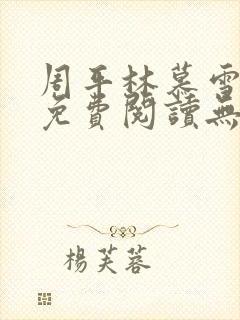 周平林慕雪
免費閱讀無
楊芙蓉